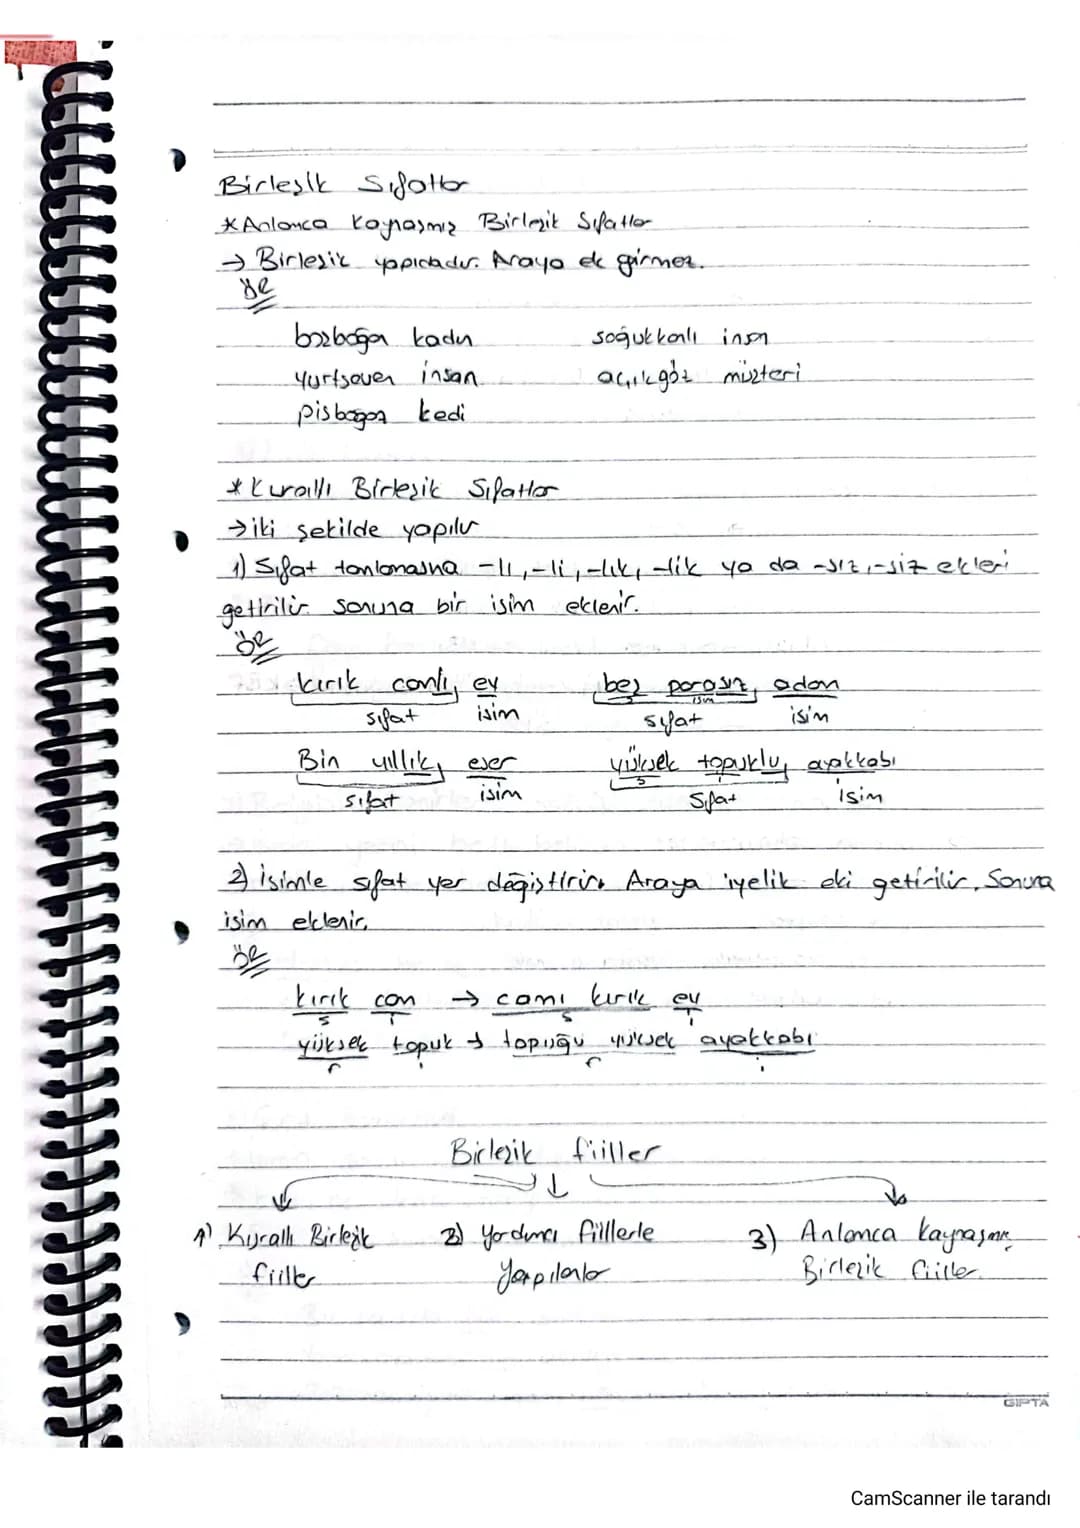 Birleşik Sıfatlar
*Anlamca Kaynaşmış Birleşik Sıfatlar
→ Birleşik yapıdadır. Araya ek girmez.
ör
boşboğaz kadın soğukkanlı insan
yurtsever insan açıkgöz müşteri
pisboğaz kedi
* Kurallı Birleşik Sıfatlar
→ iki şekilde yapılır
1) Sıfat tamlamasına -lı, -li, -lık, -lik ya da -sız, -siz ekleri
getirilir sonuna bir isim eklenir.
ör
kırık camlı, ev beş parasız, adam
sıfat isim s isim sıfat isim
Bin yıllık, eser yüksek topuklu, ayakkabı
sıfat isim s sıfat isim
2) İsimle sıfat yer değiştirir. Araya iyelik eki getirilir. Sonuna
isim eklenir.
ör
kırık cam → camı kırık ev
s i s i
yüksek topuk → topuğu yüksek ayakkabı
Birleşik fiiller
1) Kurallı Birleşik 2) Yardımcı fiillerle 3) Anlamca kaynaşmış
fiiller Yapılanlar Birleşik fiiller
GIPTA
CamScanner ile tarandı